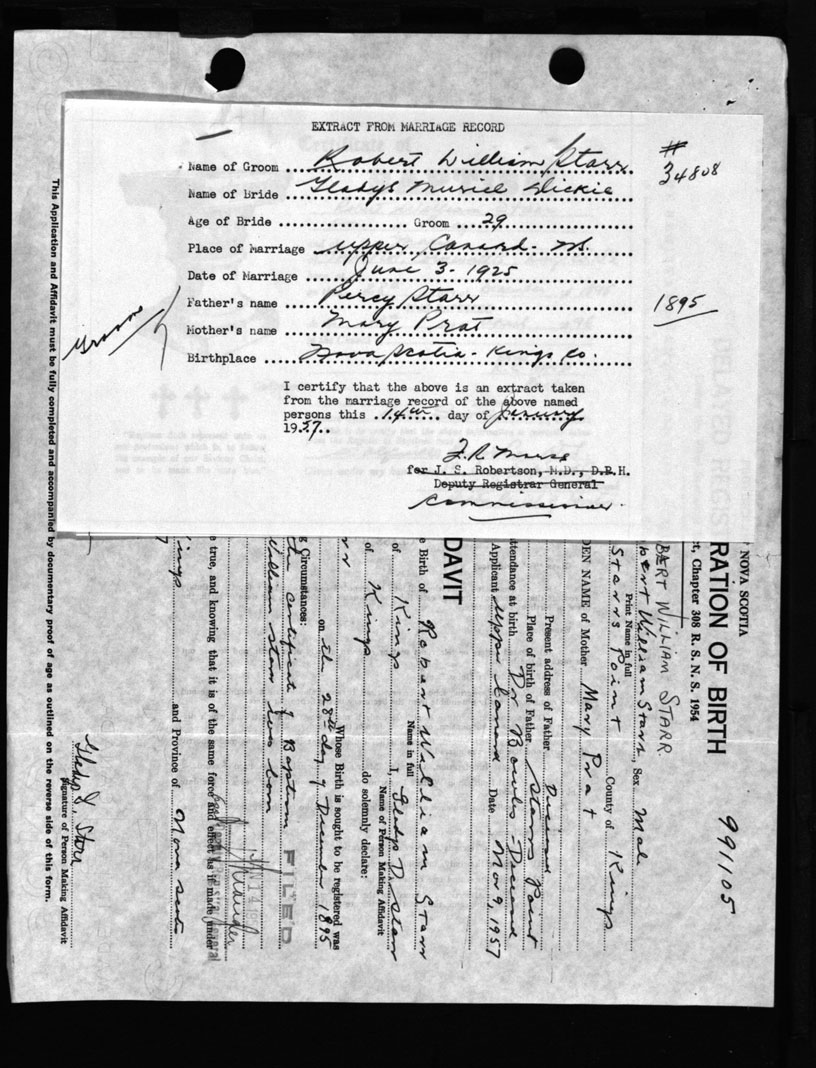 EXTRACT FROM MARRIAGE RECORD
Name of Groom Robert William Starr
Name of Bride Gladys Muriel Dickie
Age of Bride Groom 29
Place of Marriage Upper Canard - N.S.
Date of Marriage June 3 - 1925
Father's name Percy Starr
Mother's name Mary Prat
Birthplace Nova Scotia - Kings Co.
I certify that the above is an extract taken
from the marriage record of the above named
persons this 14th day of January
19
for J. S. Robertson, M.D., D.P.H.
Deputy Registrar General
Commissioner
#
34808
1895
Groom
991105
NOVA SCOTIA
RATION OF BIRTH
Chapter 308 R. S. N. S. 1954
BERT WILLIAM STARR
bert William Starr, Sex Male
Print Name in full
Starrs Point County of Kings
DEN NAME of Mother Mary Prat
Present address of Father Deceased
Place of birth of Father Starrs Point
ttendance at birth Dr Bowles Deceased
Applicant Upper Canard Date Nov 9, 1957
DAVIT
e Birth of Robert William Starr
Name in full
of Kings I, Gladys D. Starr
Name of Person Making Affidavit
of Kings do solemnly declare:
Whose Birth is sought to be registered was
on the 28th day of December 1895
g Circumstances:
the certificate of Baptism
William Starr was born
FILED
e true, and knowing that it is of the same force and effect as if made under
ings and Province of Nova Scotia
Gladys D. Starr
Signature of Person Making Affidavit
This Application and Affidavit must be fully completed and accompanied by documentary proof of age as outlined on the reverse side of this form.